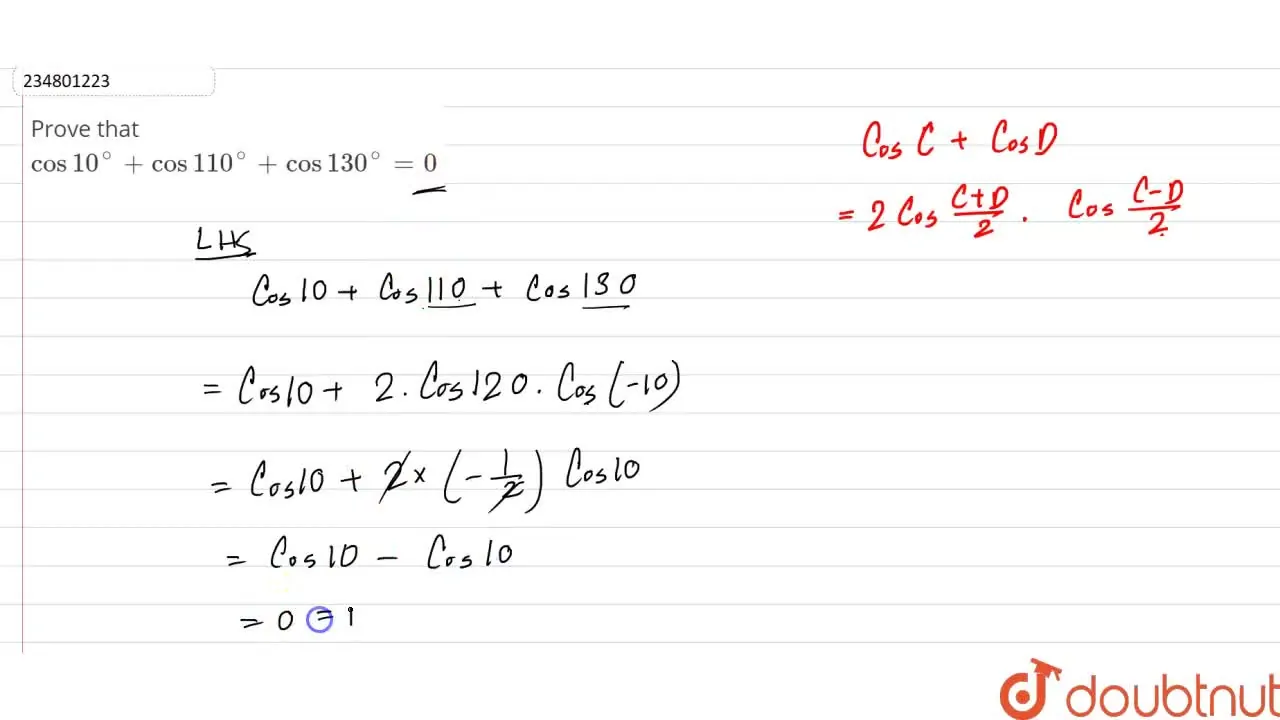 234801223
Prove that
cos 10° + cos 110° + cos 130° = 0
Cos C + Cos D
= 2 Cos (C+D)/2 . Cos (C-D)/2
LHS
Cos 10 + Cos 110 + Cos 130
= Cos 10 + 2 . Cos 120 . Cos (-10)
= Cos 10 + 2 × (-1/2) Cos 10
= Cos 10 - Cos 10
= 0 = 1
doubtnut